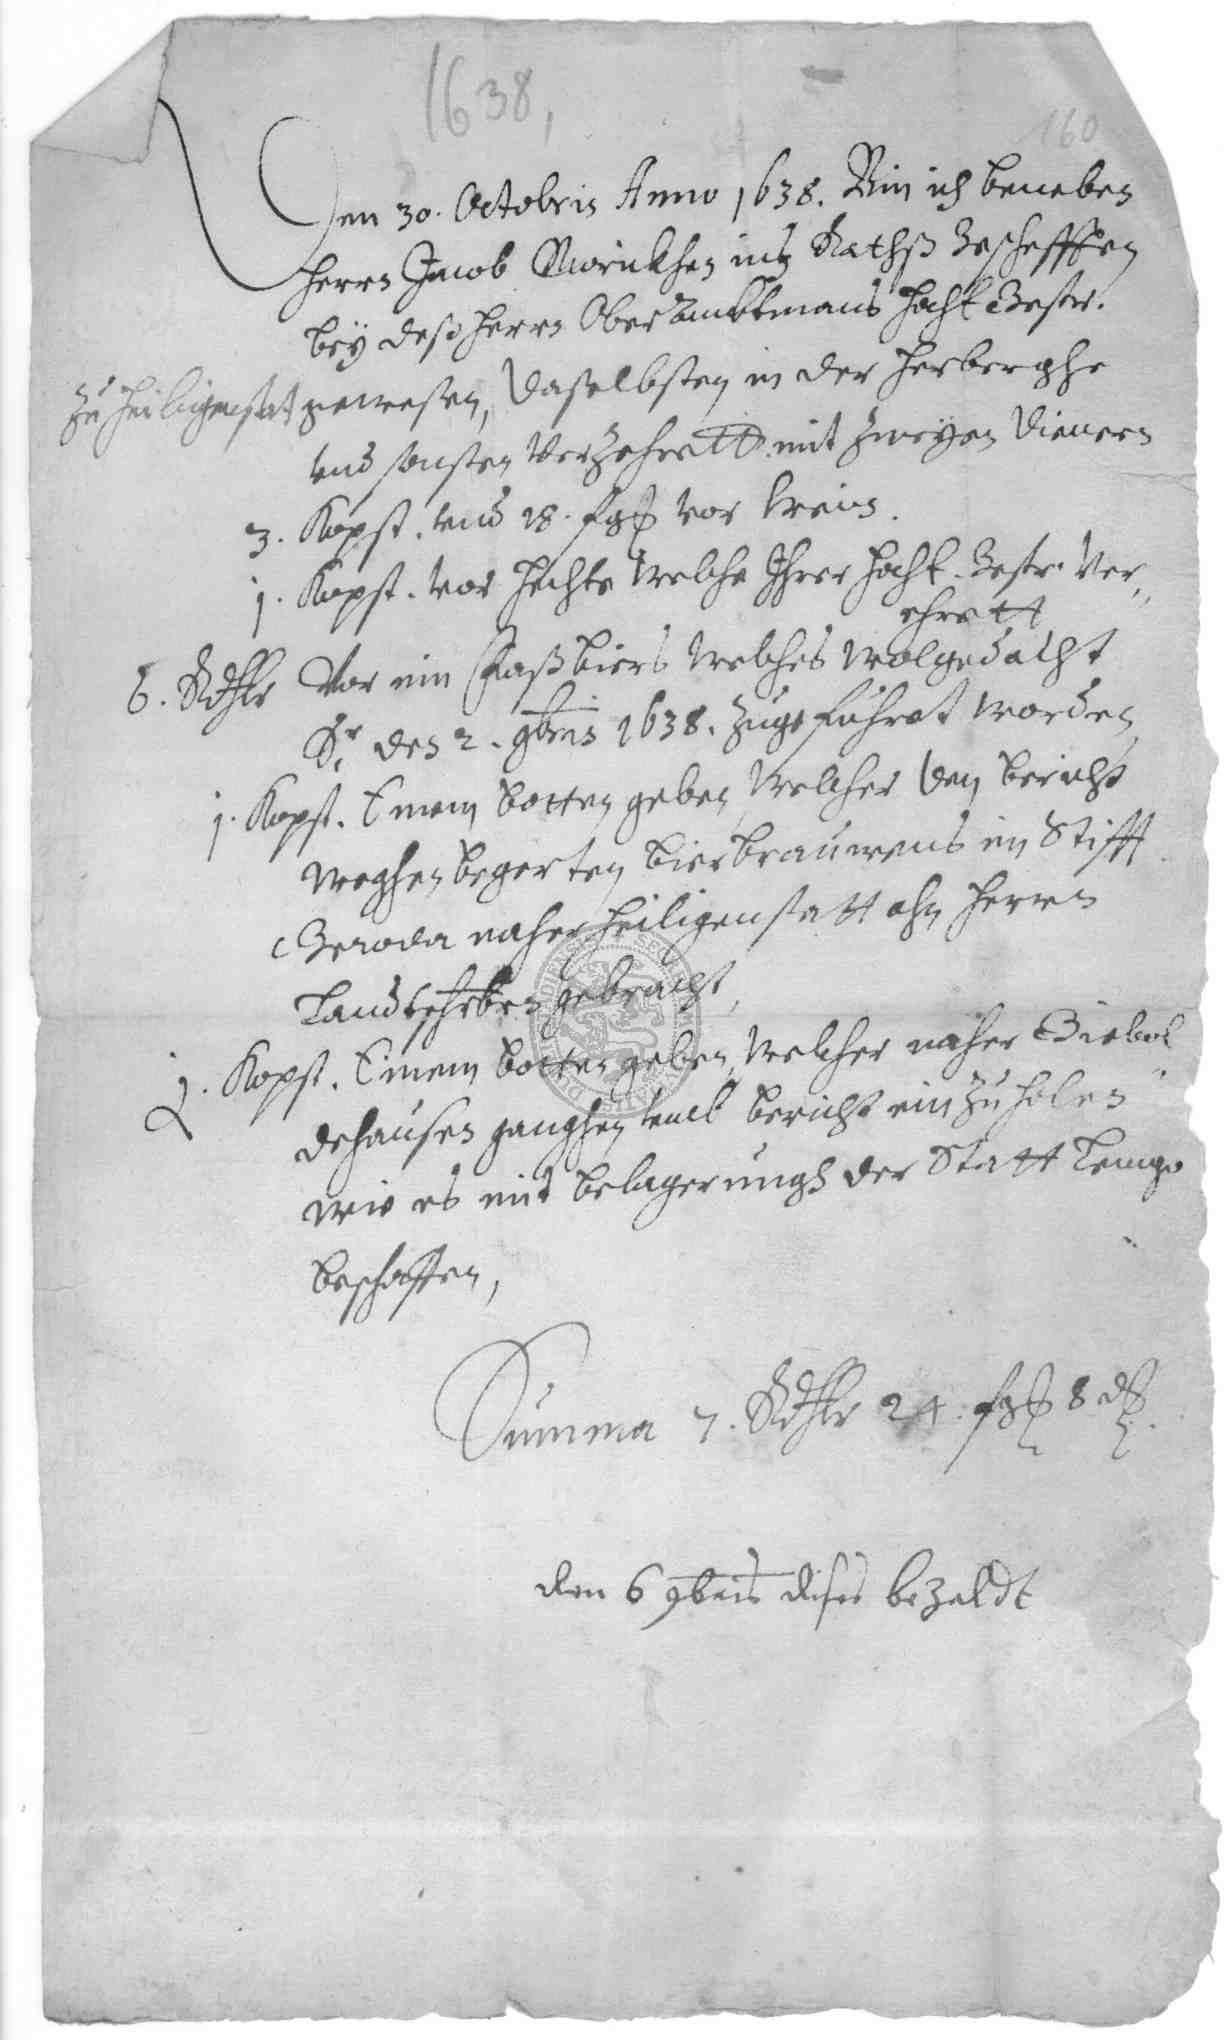 1638,
160
Den 30. Octobris Anno 1638. Bin ich beneben
Herrn Jacob in Raths Geschefften
bey deß Herrn Oberambtmans Hochk Gestr.
zu Heiligenstat gewesen, Daselbsten in der Herberghe
und sonsten Verzehrett mit zweyen Dienern
3. Kopst. und 18. fgl vor Wein.
j. Kopst. vor Hechte Welche Ihrer Hochk. Gestr. Ver„
ehrett
6. Rthlr Vor ein Faß biers Welches Wolgedacht
Sr. den 2. 9bris 1638. Zugeführet worden,
j. Kopst. Einem botten geben, Welcher den bericht
weghen begerten bierbrauwens im Stifft
Geroda naher Heiligenstatt ahn Herrn
Landtschrbrn gebracht,
j. Kopst. Einem botten geben, Welcher naher Giebol„
dehausen ganghen umb bericht ein Zu holen
wie es mit belagerungh der Statt Lemgo
beschaffen,
Summa 7. Rthlr 24. fgl 8 d.
den 6 9bris dises bezaldt